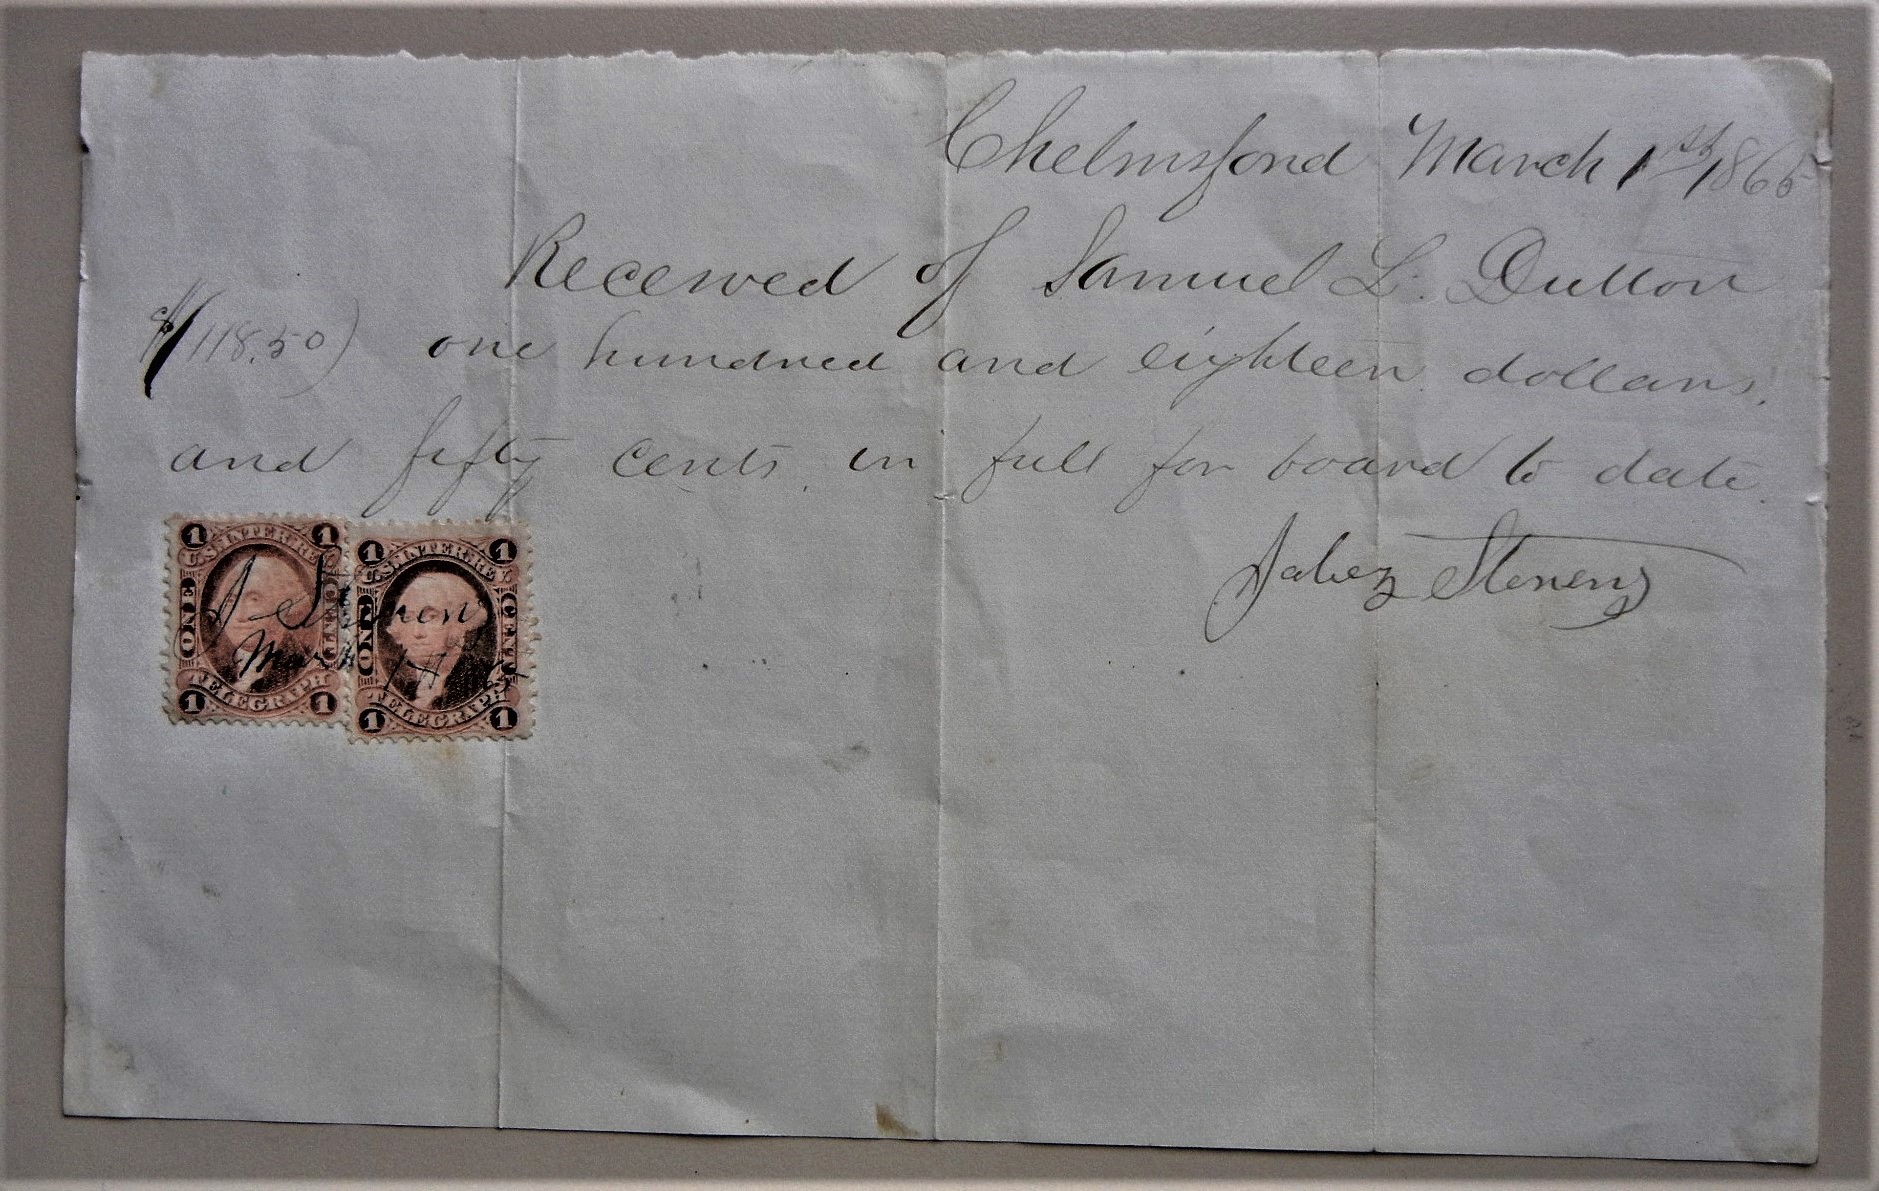 Chelmsford March 1st 1865
Received of Samuel L. Dutton
$(118.50) one hundred and eighteen dollars,
and fifty cents in full for board to date.
Jabez Stevens
1 U.S. INTER. REV. 1
ONE CENT
TELEGRAPH
1 1
1 U.S. INTER. REV. 1
ONE CENT
TELEGRAPH
1 1
J Steven
March 1st